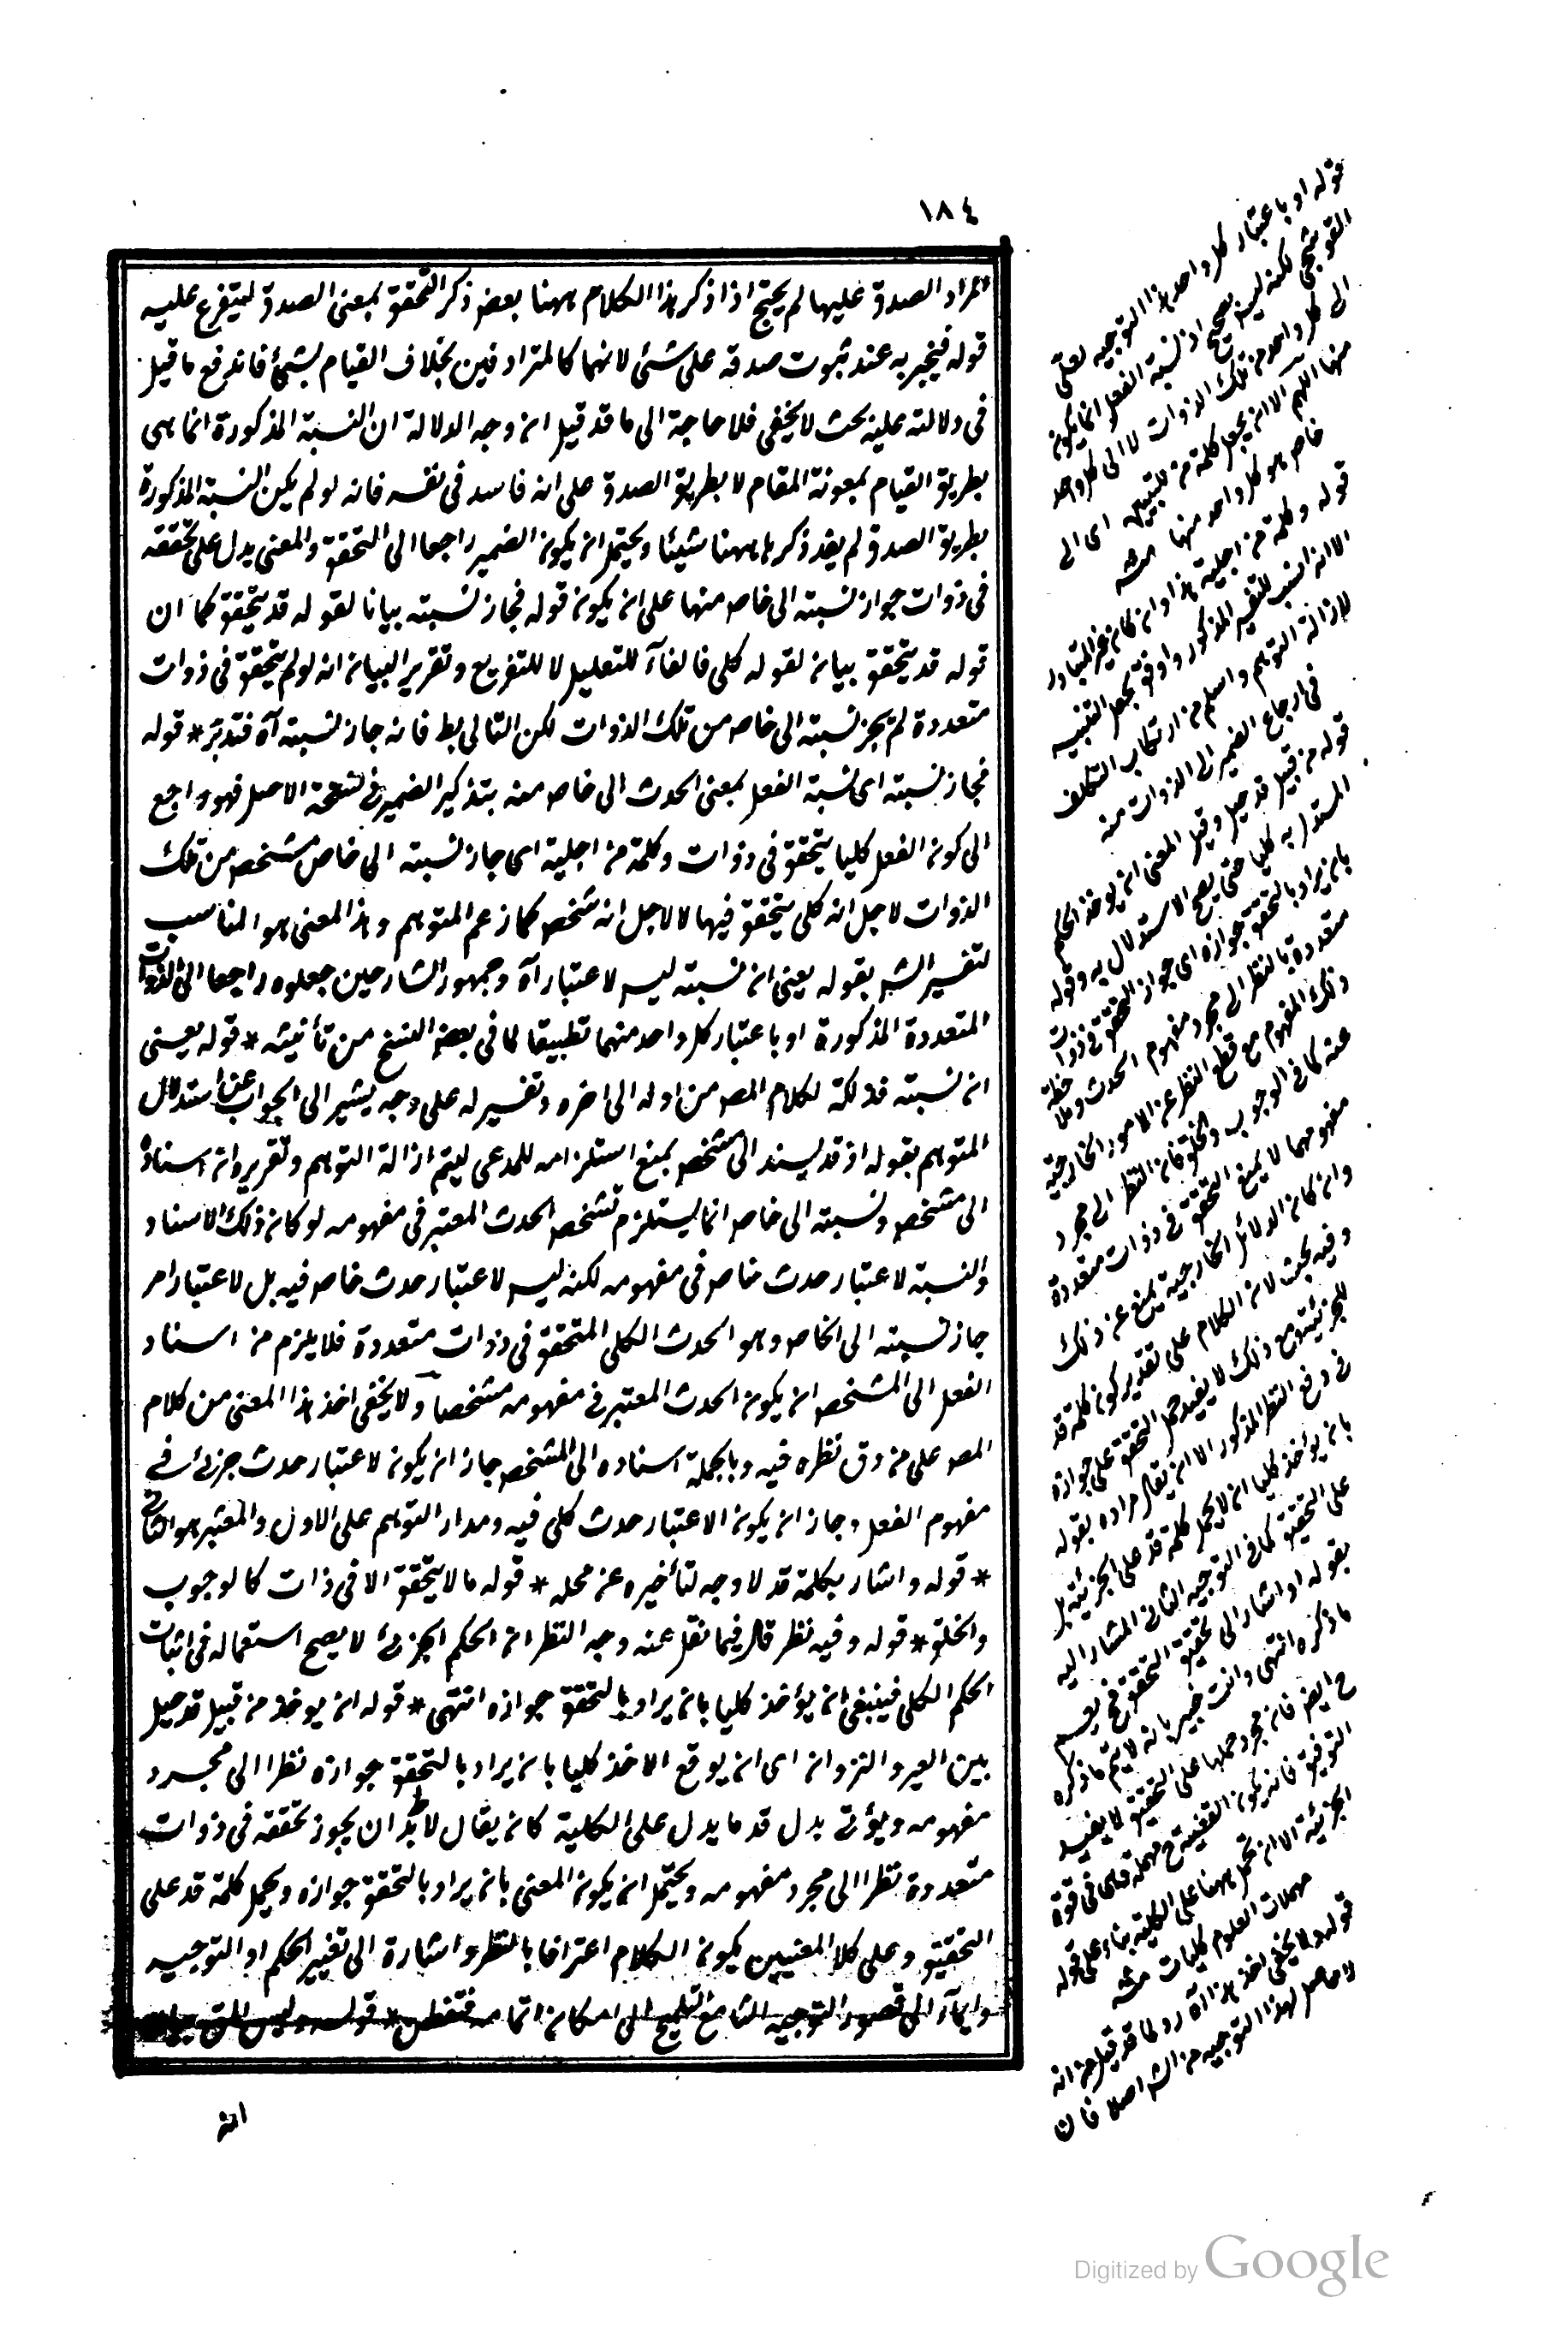 ١٨٤
المراد الصدق عليها لم يحتج اذا ذكر هذا الكلام ههنا بعض ذكر التحقق بمعنى الصدق ليتفرع عليه
قوله فيخبر به عند ثبوت صدقه على شئ لانهما كالمترادفين بخلاف القيام بشئ فاندفع ما قيل
فى دلالته عليه بحث لا يخفى فلا حاجة الى ما قد قيل ان وجه الدلالة ان النسبة المذكورة انما هى
بطريق القيام بمعونة المقام لا بطريق الصدق على انه فاسد فى نفسه فانه لو لم يكن النسبة المذكورة
بطريق الصدق لم يفد ذكرها ههنا شيئا ويحتمل ان يكون الضمير راجعا الى التحقق والمعنى يدل على تحققه
فى ذوات جواز نسبته الى خاص منها على ان يكون قوله فجاز نسبته بيانا لقوله قد يتحقق كما ان
قوله قد يتحقق بيان لقوله كلى فالفآء للتعليل لا للتفريع وتقرير البيان انه لو لم يتحقق فى ذوات
متعددة لم يجز نسبته الى خاص من تلك الذوات لكن التالى بط فانه جاز نسبته آه فتدبر * قوله
فجاز نسبته اى نسبة الفعل بمعنى الحدث الى خاص منه بتذكير الضمير فى نسخة الاصل فهو راجع
الى كون الفعل كليا يتحقق فى ذوات وكلمة من اجلية اى جاز نسبته الى خاص مشخص من تلك
الذوات لاجل انه كلى يتحقق فيها لا لاجل انه شخص كما زعم المتوهم وهذا المعنى هو المناسب
لتفسير الشر بقوله يعنى ان نسبته ليس لاعتبار آه وجمهور الشارحين جعلوه راجعا الى الذوات
المتعددة المذكورة او باعتبار كل واحد منهما تطبيقا لما فى بعض النسخ من تأنيثه * قوله يعنى
ان نسبته فذلكة لكلام المص من اوله الى اخره وتفسير له على وجه يشير الى الجواب عن استدلال
المتوهم بقوله اذ قد يسند الى مشخص بمنع استلزامه للمدعى ليتم ازالة التوهم وتقريره ان اسناده
الى مشخص ونسبته الى خاص انما يستلزم تشخص الحدث المعتبر فى مفهومه لو كان ذلك الاسناد
والنسبة لاعتبار حدث خاص فى مفهومه لكنه ليس لاعتبار حدث خاص فيه بل لاعتبار امر
جاز نسبته الى الخاص وهو الحدث الكلى المتحقق فى ذوات متعددة فلا يلزم من اسناد
الفعل الى المشخص ان يكون الحدث المعتبر فى مفهومه مشخصا ولا يخفى اخذ هذا المعنى من كلام
المص على من دق نظره فيه وبالجملة اسناده الى المشخص جاز ان يكون لاعتبار حدث جزئى فى
مفهوم الفعل وجاز ان يكون الاعتبار حدث كلى فيه ومدار التوهم على الاول والمعتبر هو الثانى
* قوله واشار بكلمة قد لا وجه لتأخيره عن محله * قوله ما لا يتحقق الا فى ذات كالوجوب
والخلق * قوله وفيه نظر قال فيما نقل عنه وجه النظر ان الحكم الجزئى لا يصح استعماله فى اثبات
الحكم الكلى فينبغى ان يؤخذ كليا بان يراد بالتحقق جوازه انتهى * قوله ان يوخذ من قبيل قد حيل
بين العير والنزوان اى ان يوقع الاخذ كليا بان يراد بالتحقق جوازه نظرا الى مجرد
مفهومه ويؤتى بدل قد ما يدل على الكلية كان يقال لا بد ان يجوز تحققه فى ذوات
متعددة نظرا الى مجرد مفهومه ويحتمل ان يكون المعنى بان يراد بالتحقق جوازه ويحمل كلمة قد على
التحقيق وعلى كلا المعنيين يكون الكلام اعترافا بالنظر واشارة الى تغيير الحكم او التوجيه
وايمآء الى قصور التوجيه الشا مع التلميح الى امكان اتمامه فتفطن * قوله وليس
قوله او باعتبار كل واحد هذا التوجيه لعلى
القوشجى لكنه ليس بصحيح اذ نسبة الفعل انما يكون
الى كل واحد من تلك الذوات لا الى كل واحد
منها اللهم الا ان يجعل كلمة من للتبيين اى الى
خاص هو كل واحد منها منه
قوله وكلمة من اجلية هذا وان كان غير المتبادر
الا انه انسب للتفسير المذكور واوفق بجعل التنبيه
لازالة التوهم واسلم من ارتكاب التكلف
فى ارجاع الضمير الى الذوات منه
قوله من قبيل قد حيل وقيل المعنى ان يوخذ الحكم
المستدل به كليا حتى يصح الاستدلال به وقوله
بان يراد بالتحقق جوازه اى جواز التحقق فى ذوات
متعددة بالنظر الى مجرد مفهوم الحدث وملاحظة
ذلك المفهوم مع قطع النظر عن الامور الخارجية
عنه كما فى الوجوب والخلق فان النظر الى مجرد
مفهومهما لا يمنع التحقق فى ذوات متعددة
وان كان الدلائل الخارجية يمنع عن ذلك
وفيه بحث لان الكلام على تقدير كون كلمة قد
للجزئية ومع ذلك لا يفيد حمل التحقق على جوازه
فى دفع النظر المذكور الا ان يقال مراده بقوله
بان يوخذ كليا ان لا يحمل كلمة قد على الجزئية بل
على التحقيق كما فى التوجيه الثانى المشار اليه
بقوله او اشار الى تحقيق التحقق فح يعم
ما ذكره انتهى وانت خبير بانه لا يتم ما ذكره
ح ايضا فان مجرد حملها على التحقيق لا يفيد
التوفيق فانه يكون القضية ح مهملة فهى فى قوة
الجزئية الا ان تحمل ههنا على الكلية بناء على قوله
مهملات العلوم كليات منه
قوله ولا يخفى اخذ هذا آه رد لما قد قيل من انه
لا حاصل لهذا التوجيه من الشر اصلا فان
Digitized by Google